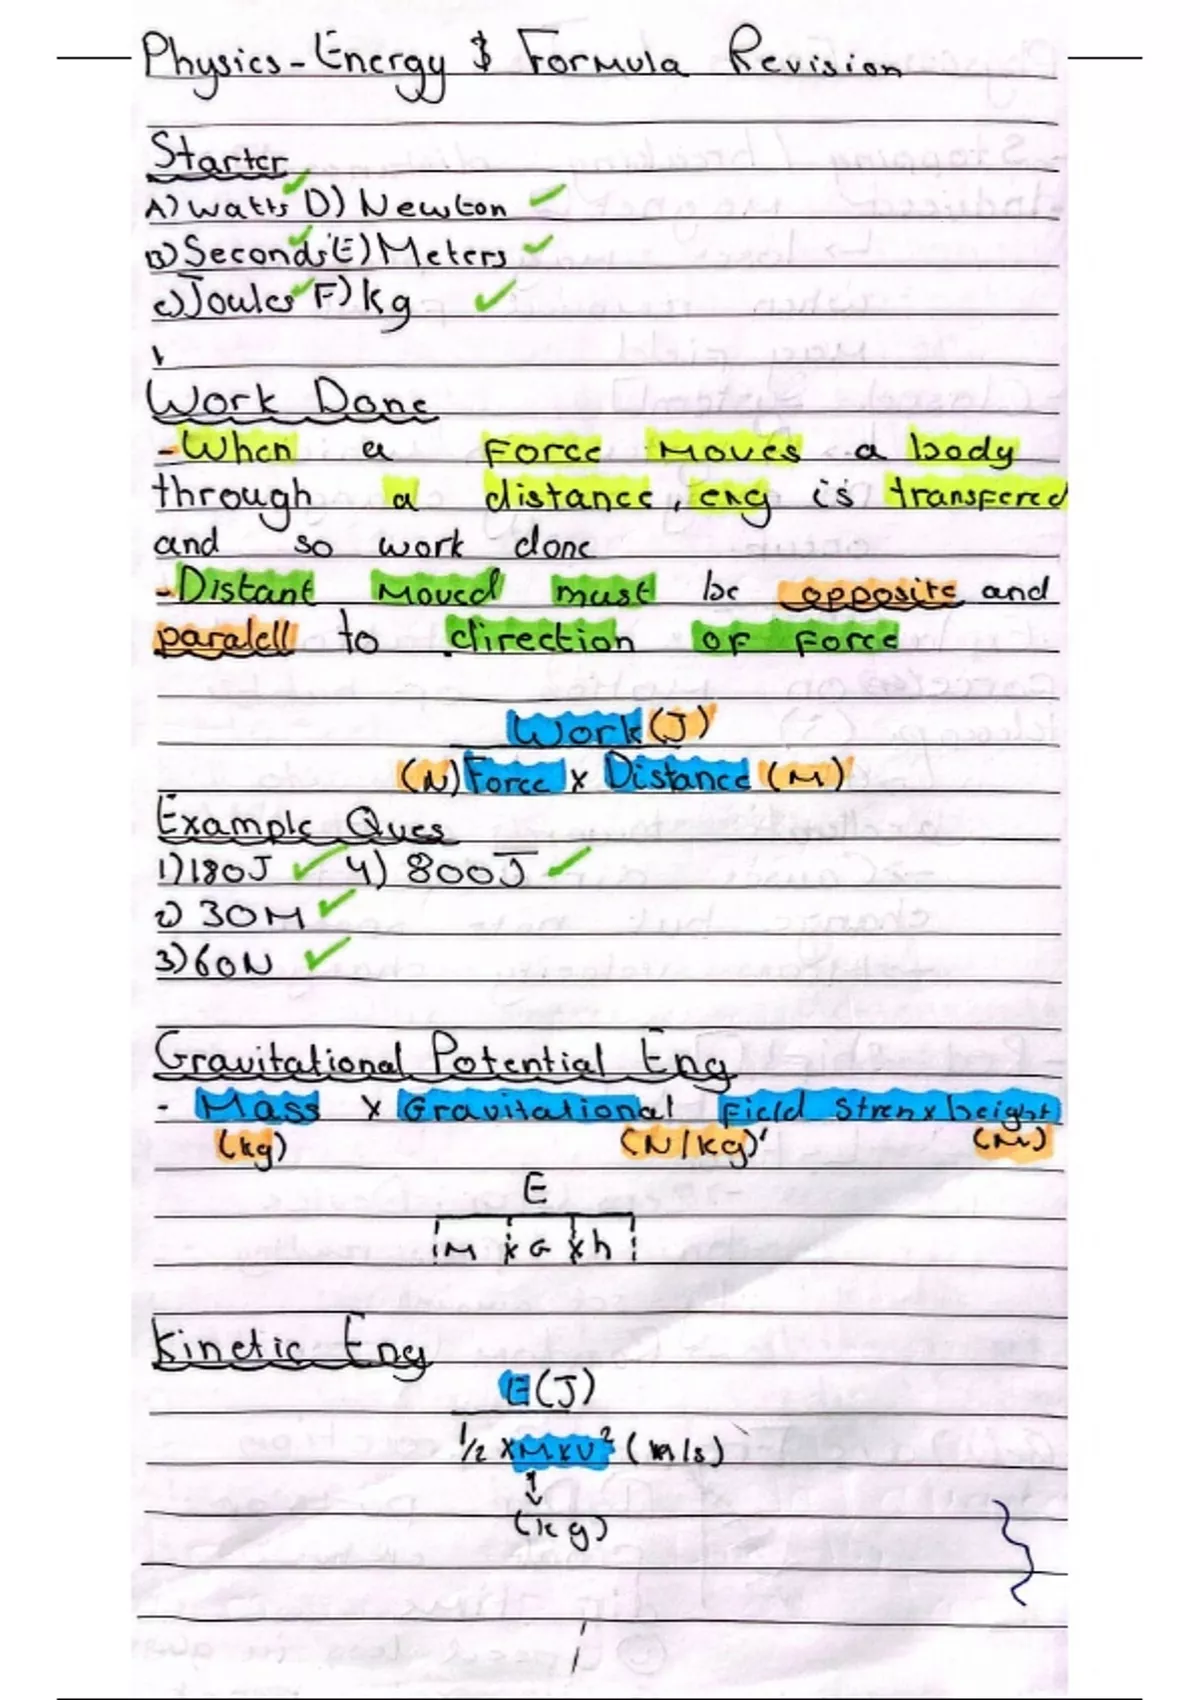 Physics - Energy & Formula Revision
Starter
A) Watts D) Newton
B) Seconds E) Meters
c) Joules F) kg
Work Done
- When a Force Moves a body
through a distance, eng is transfered
and so work done
- Distant Moved must be opposite and
paralell to direction of Force
Work (J)
(N) Force x Distance (M)
Example Ques
1) 180J 4) 800J
2) 30M
3) 60N
Gravitational Potential Eng
- Mass x Gravitational Field Stren x height
(kg) (N/kg) (M)
E
M x G x h
Kinetic Eng
E (J)
1/2 x M x V² (m/s)
(kg)